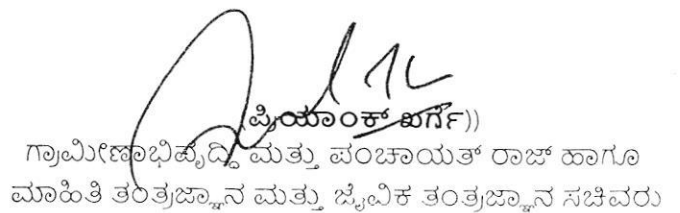 (ಪ್ರಿಯಾಂಕ್ ಖರ್ಗೆ))
ಗ್ರಾಮೀಣಾಭಿವೃದ್ಧಿ ಮತ್ತು ಪಂಚಾಯತ್ ರಾಜ್ ಹಾಗೂ
ಮಾಹಿತಿ ತಂತ್ರಜ್ಞಾನ ಮತ್ತು ಜೈವಿಕ ತಂತ್ರಜ್ಞಾನ ಸಚಿವರು